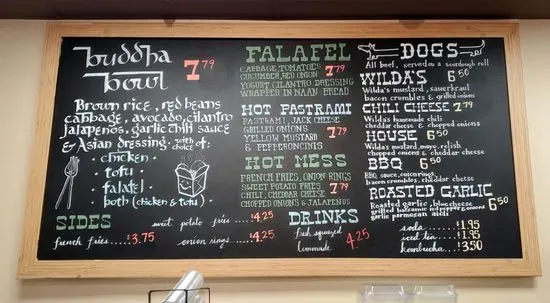 buddha
bowl 7.79
Brown rice, red beans
cabbage, avocado, cilantro
jalapeños, garlic chili sauce
& Asian dressing. with choice of:
• chicken
• tofu
• falafel
• both (chicken & tofu)
SIDES
french fries.....$3.75
sweet potato fries...$4.25
onion rings....$4.25
FALAFEL
CABBAGE, TOMATOES
CUCUMBER, RED ONION
YOGURT CILANTRO DRESSING
WRAPPED IN NAAN BREAD
7.79
HOT PASTRAMI
PASTRAMI, JACK CHEESE
GRILLED ONIONS
YELLOW MUSTARD
& PEPPERONCINIS
7.79
HOT MESS
FRENCH FRIES, ONION RINGS
SWEET POTATO FRIES
CHILI, CHEDDAR CHEESE
CHOPPED ONIONS & JALAPENOS
7.79
DRINKS
fresh squeezed
lemonade 4.25
soda.....$1.95
iced tea...$1.95
kombucha...$3.50
DOGS
All beef, served on a sourdough roll
WILDA'S 6.50
Wilda's mustard, sauerkraut
bacon crumbles & grilled onions
CHILI CHEESE 7.79
Wilda's homemade chili
cheddar cheese & chopped onions
HOUSE 6.50
Wilda's mustard, mayo, relish
chopped onions & cheddar cheese
BBQ 6.50
BBQ sauce, onion rings,
bacon crumbles, cheddar cheese
ROASTED GARLIC
Roasted garlic, blue cheese 6.50
grilled balsamic red peppers & onions
garlic parmesan aioli